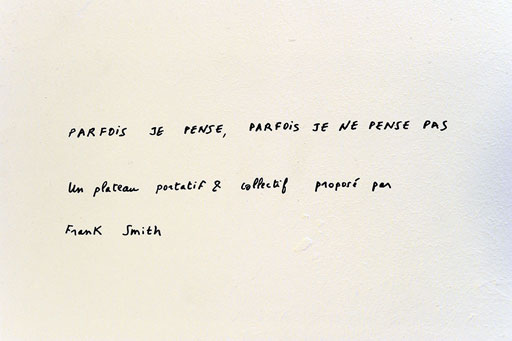 PARFOIS JE PENSE, PARFOIS JE NE PENSE PAS
Un plateau portatif & collectif proposé par
Frank Smith